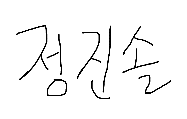 정진솔